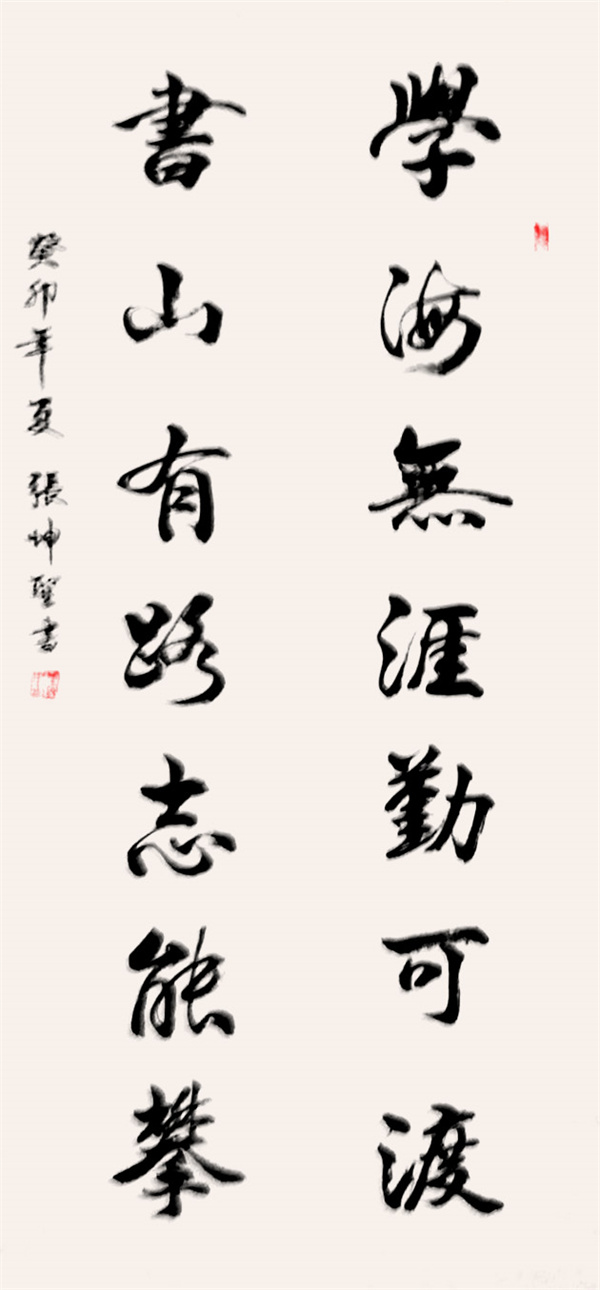 學海無涯勤可渡
書山有路志能攀
癸卯年夏 張坤聖書